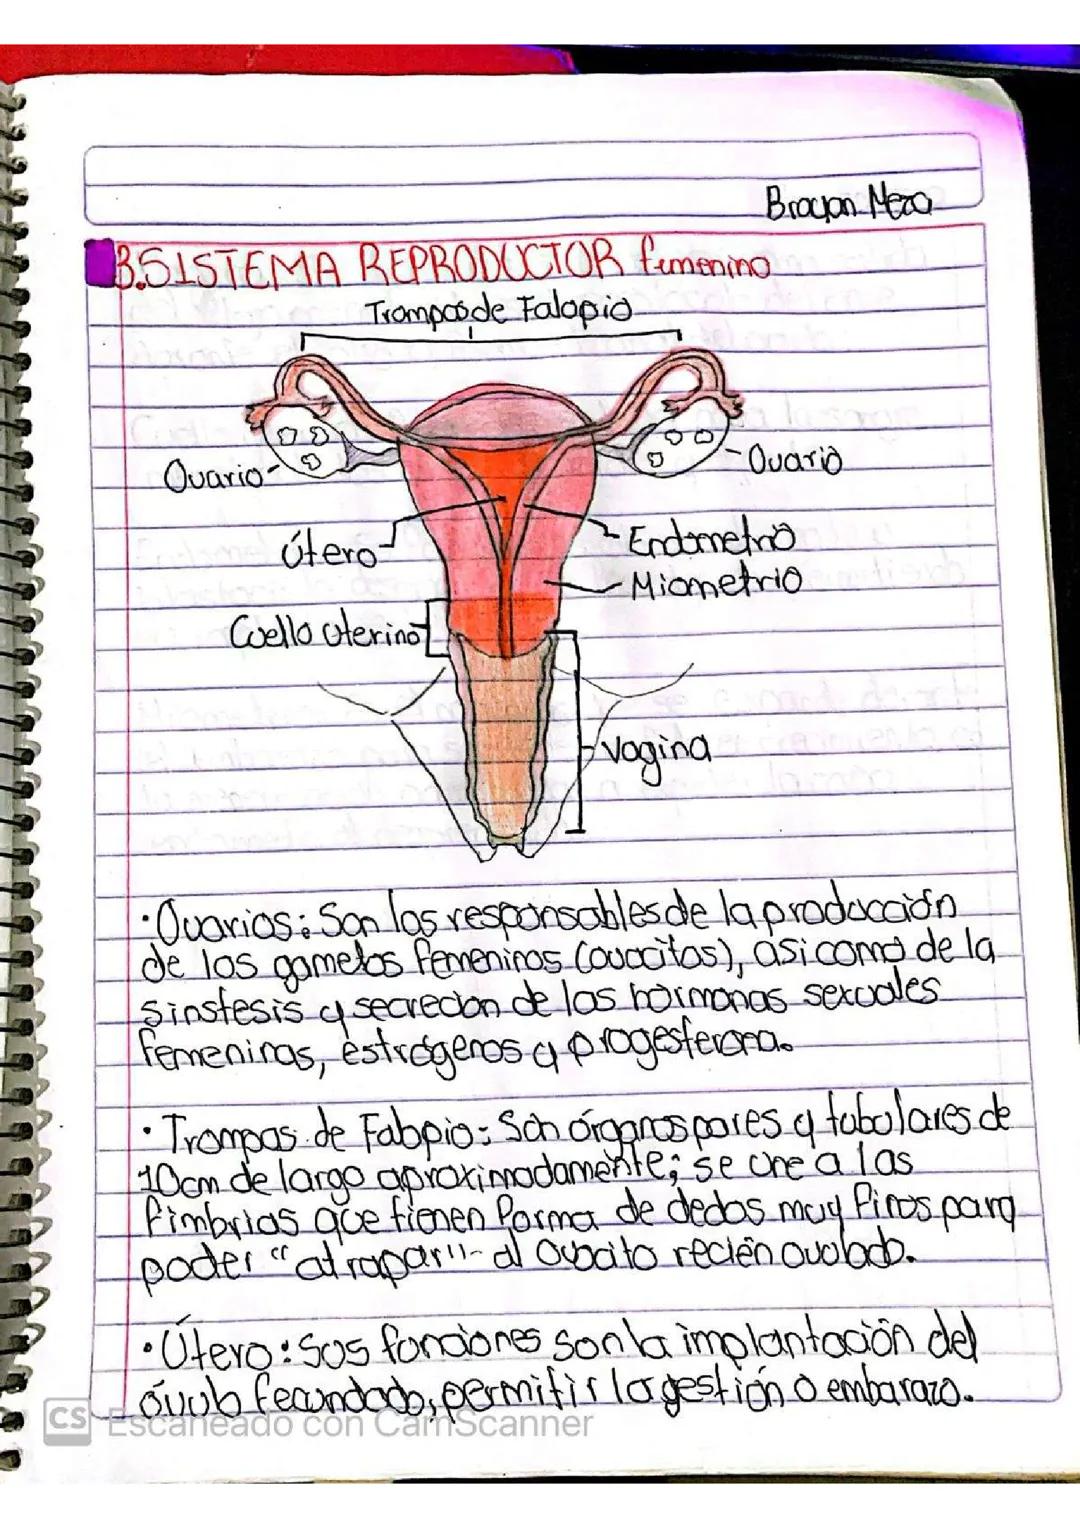 Brayan Meza
3.SISTEMA REPRODUCTOR femenino
Trompas de Falopio
Ovario
Ovario
Útero
Endometrio
Miometrio
Cuello Uterino
Vagina
•Ovarios: Son los responsables de la producción
de los gametos femeninos (ovocitos), asi como de la
sinstesis y secreción de las hormonas sexuales
femeninas, estrógenos y progesterona.
•Trompas de Falopio: Son órganos pares y tubulares de
10cm de largo aproximadamente; se une a las
fimbrias que tienen forma de dedos muy finos para
poder "atrapar" al ovocito recién ovulado.
•Útero: Sus funciones son la implantación del
óvulo fecundado, permitir la gestión o embarazo.
CS Escaneado con CamScanner